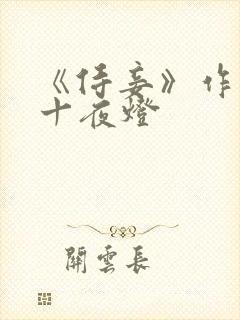 《侍妾》作
十夜燈
關雲長